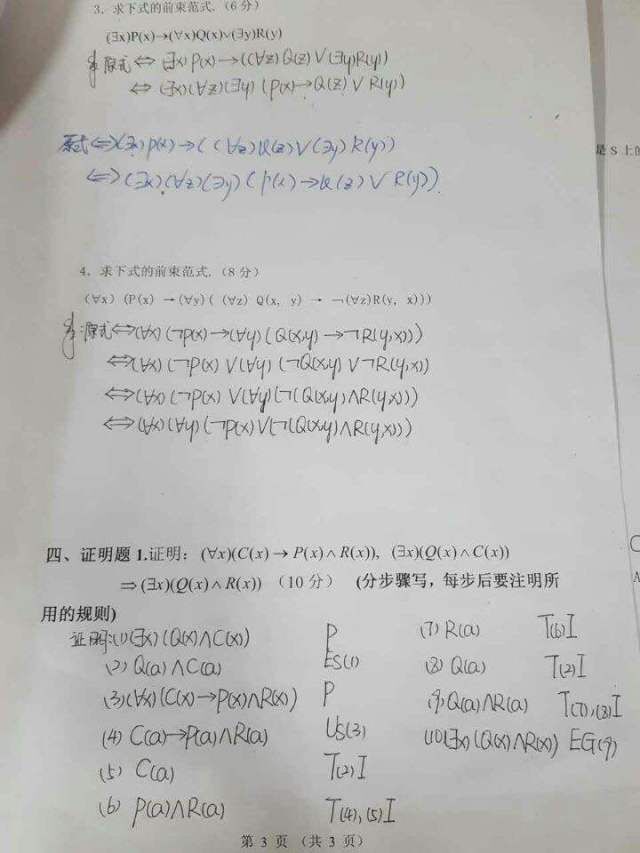 3. 求下式的前束范式.（6 分）
(∃x)P(x)→(∀x)Q(x)∨(∃y)R(y)
原式⇔(∃x)P(x)→((∀z)Q(z)∨(∃y)R(y))
⇔(∃x)(∀z)(∃y)(P(x)→Q(z)∨R(y))
原式⇔(∃x)P(x)→((∀z)Q(z)∨(∃y)R(y))
⇔(∃x)(∀z)(∃y)(P(x)→Q(z)∨R(y))
是 S 上的
4. 求下式的前束范式.（8 分）
(∀x)(P(x)→(∀y)((∀z)Q(x, y)→¬(∀z)R(y, x)))
原式⇔(∀x)(¬P(x)→(∀y)(Q(x,y)→¬R(y,x)))
⇔(∀x)(¬P(x)∨(∀y)(¬Q(x,y)∨¬R(y,x))
⇔(∀x)(¬P(x)∨(∀y)(¬(Q(x,y)∧R(y,x)))
⇔(∀x)(∀y)(¬P(x)∨(¬(Q(x,y)∧R(y,x)))
四、证明题 1.证明：(∀x)(C(x)→P(x)∧R(x)), (∃x)(Q(x)∧C(x))
⇒(∃x)(Q(x)∧R(x))（10 分）(分步骤写，每步后要注明所
用的规则)
证明:(1)(∃x)(Q(x)∧C(x)) P
(2) Q(a)∧C(a) ES(1)
(3)(∀x)(C(x)→P(x)∧R(x)) P
(4) C(a)→P(a)∧R(a) US(3)
(5) C(a) T(2)I
(6) P(a)∧R(a) T(4),(5)I
(7) R(a) T(6)I
(8) Q(a) T(2)I
(9) Q(a)∧R(a) T(7),(8)I
(10)(∃x)(Q(x)∧R(x)) EG(9)
第 3 页 （共 3 页）